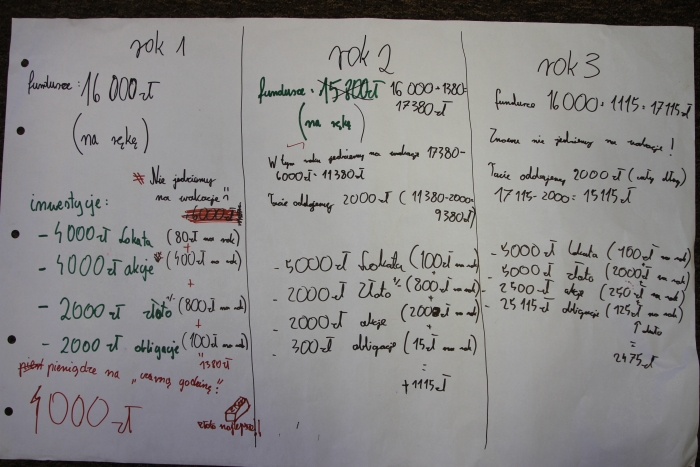 rok 1
fundusze: 16 000 zł
(na rękę)
* Nie jedziemy
na wakacje
inwestycje:
- 4000 zł Lokata (80 zł na rok)
+
- 4000 zł akcje (400 zł na rok)
+
- 2000 zł złoto (800 zł na rok)
+
- 2000 zł obligacje (100 zł na rok)
"
1380 zł
pieniądze na "czarną godzinę":
4000 zł
złoto najlepsze!!
rok 2
fundusze: 15 800 zł 16 000 + 1380 =
17380 zł
(na rękę)
W tym roku jedziemy na wakacje 17380 -
6000 zł = 11380 zł
Tacie oddajemy 2000 zł (11380 - 2000 =
9380 zł)
- 5000 zł Lokata (100 zł na rok)
- 2000 zł złoto (800 zł na rok)
+
- 2000 zł akcje (200 zł na rok)
+
- 300 zł obligacje (15 zł na rok)
=
+1115 zł
rok 3
fundusze 16000 + 1115 = 17115 zł
Znowu nie jedziemy na wakacje!
Tacie oddajemy 2000 zł (cały dług)
17115 - 2000 = 15115 zł
- 5000 zł lokata (100 zł na rok)
- 5000 zł złoto (2000 zł na rok)
- 2500 zł akcje (250 zł na rok)
- 25115 zł obligacje (125 zł na rok)
↑ dało
=
2475 zł